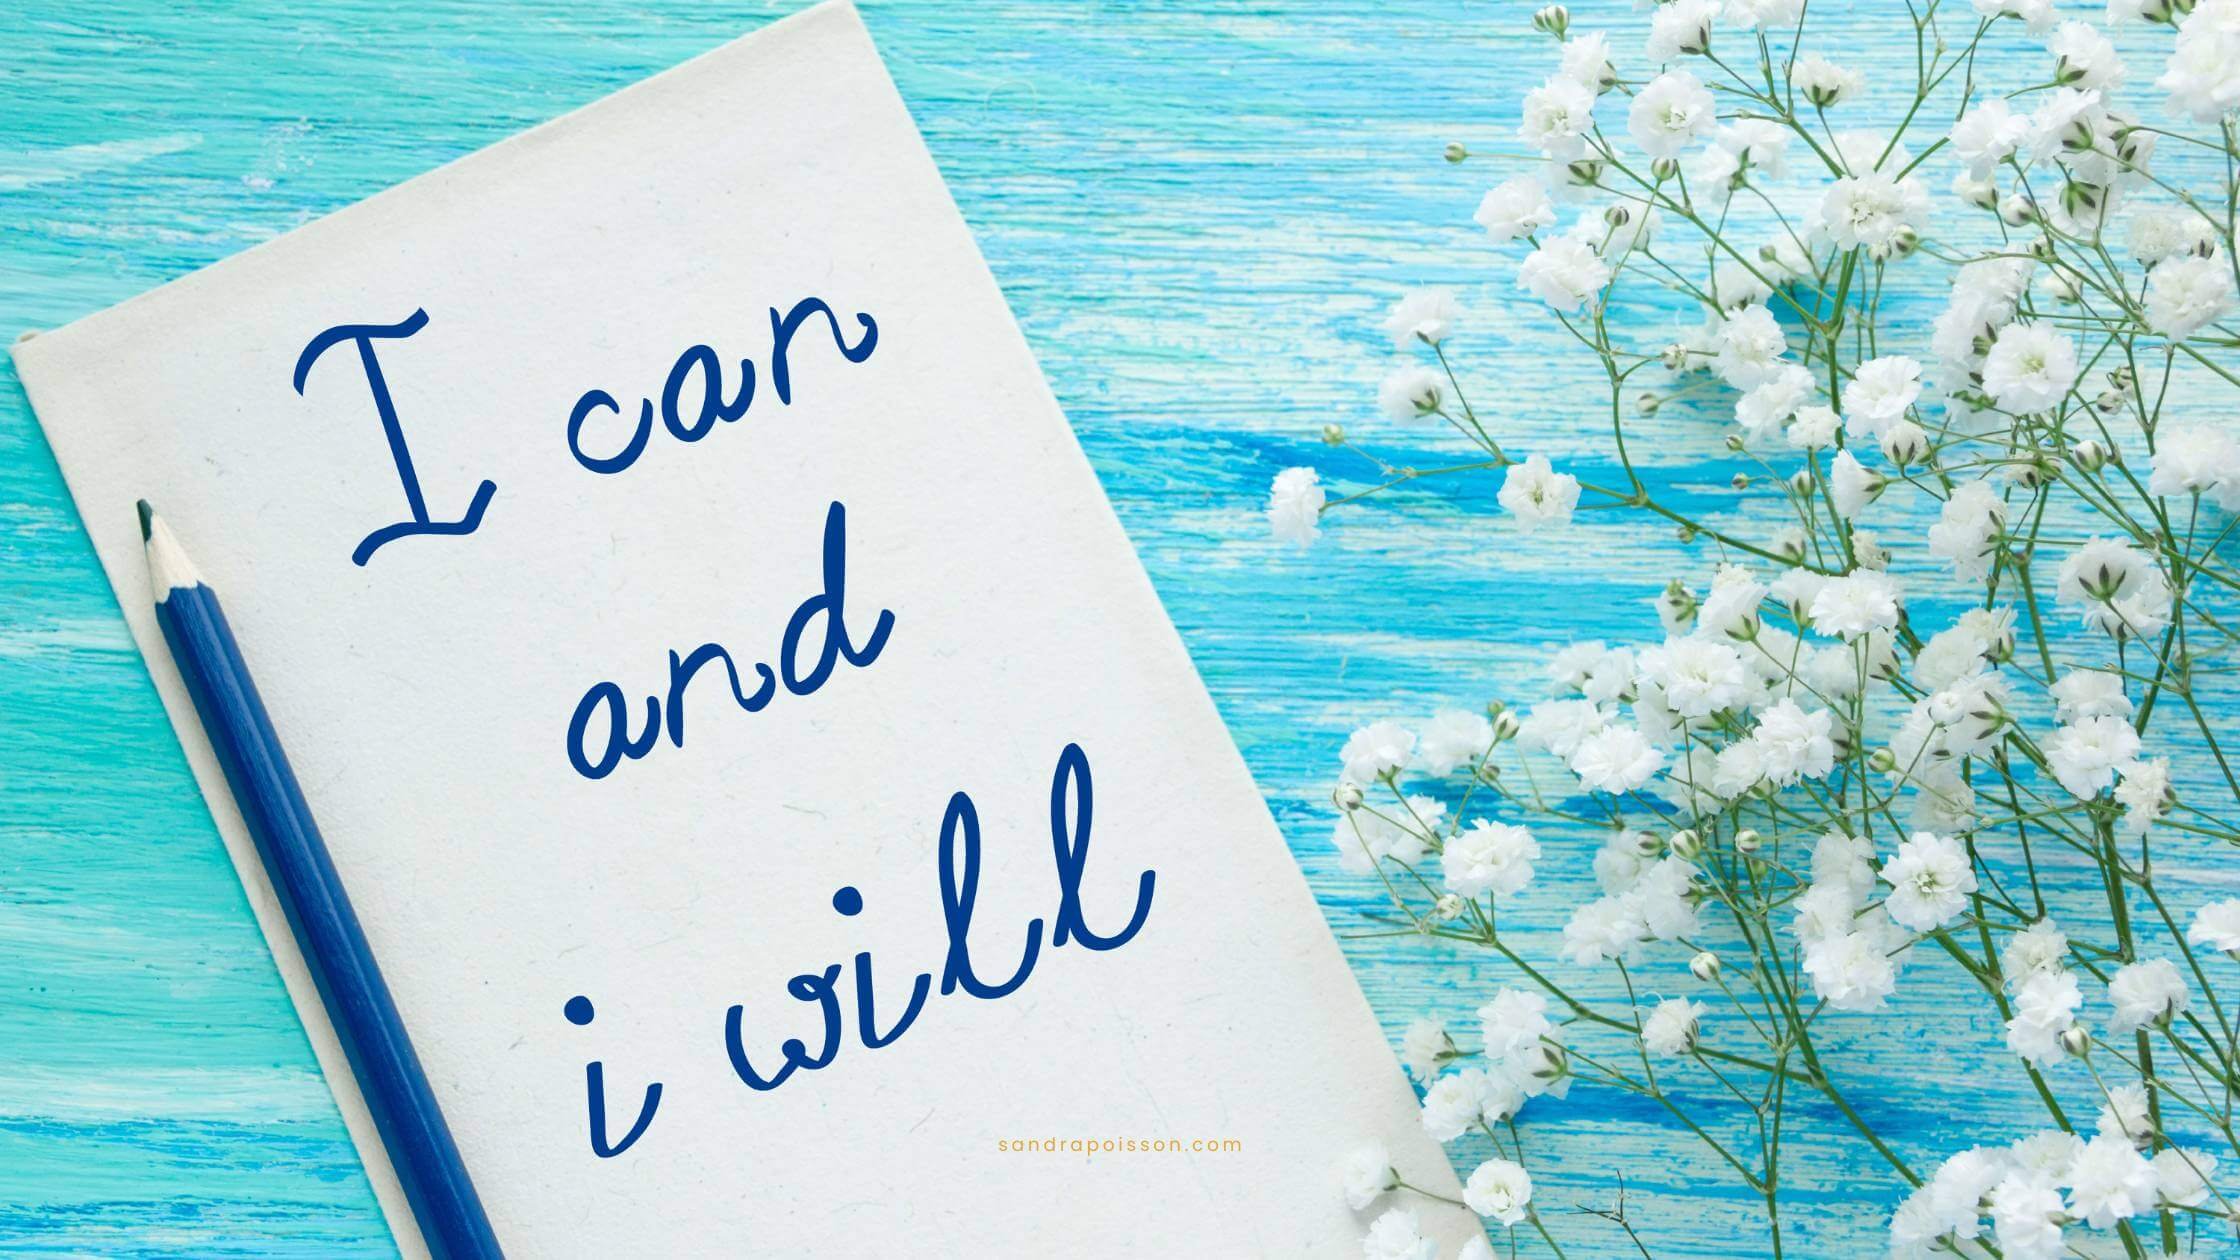 I can
and
i will
sandrapoisson.com